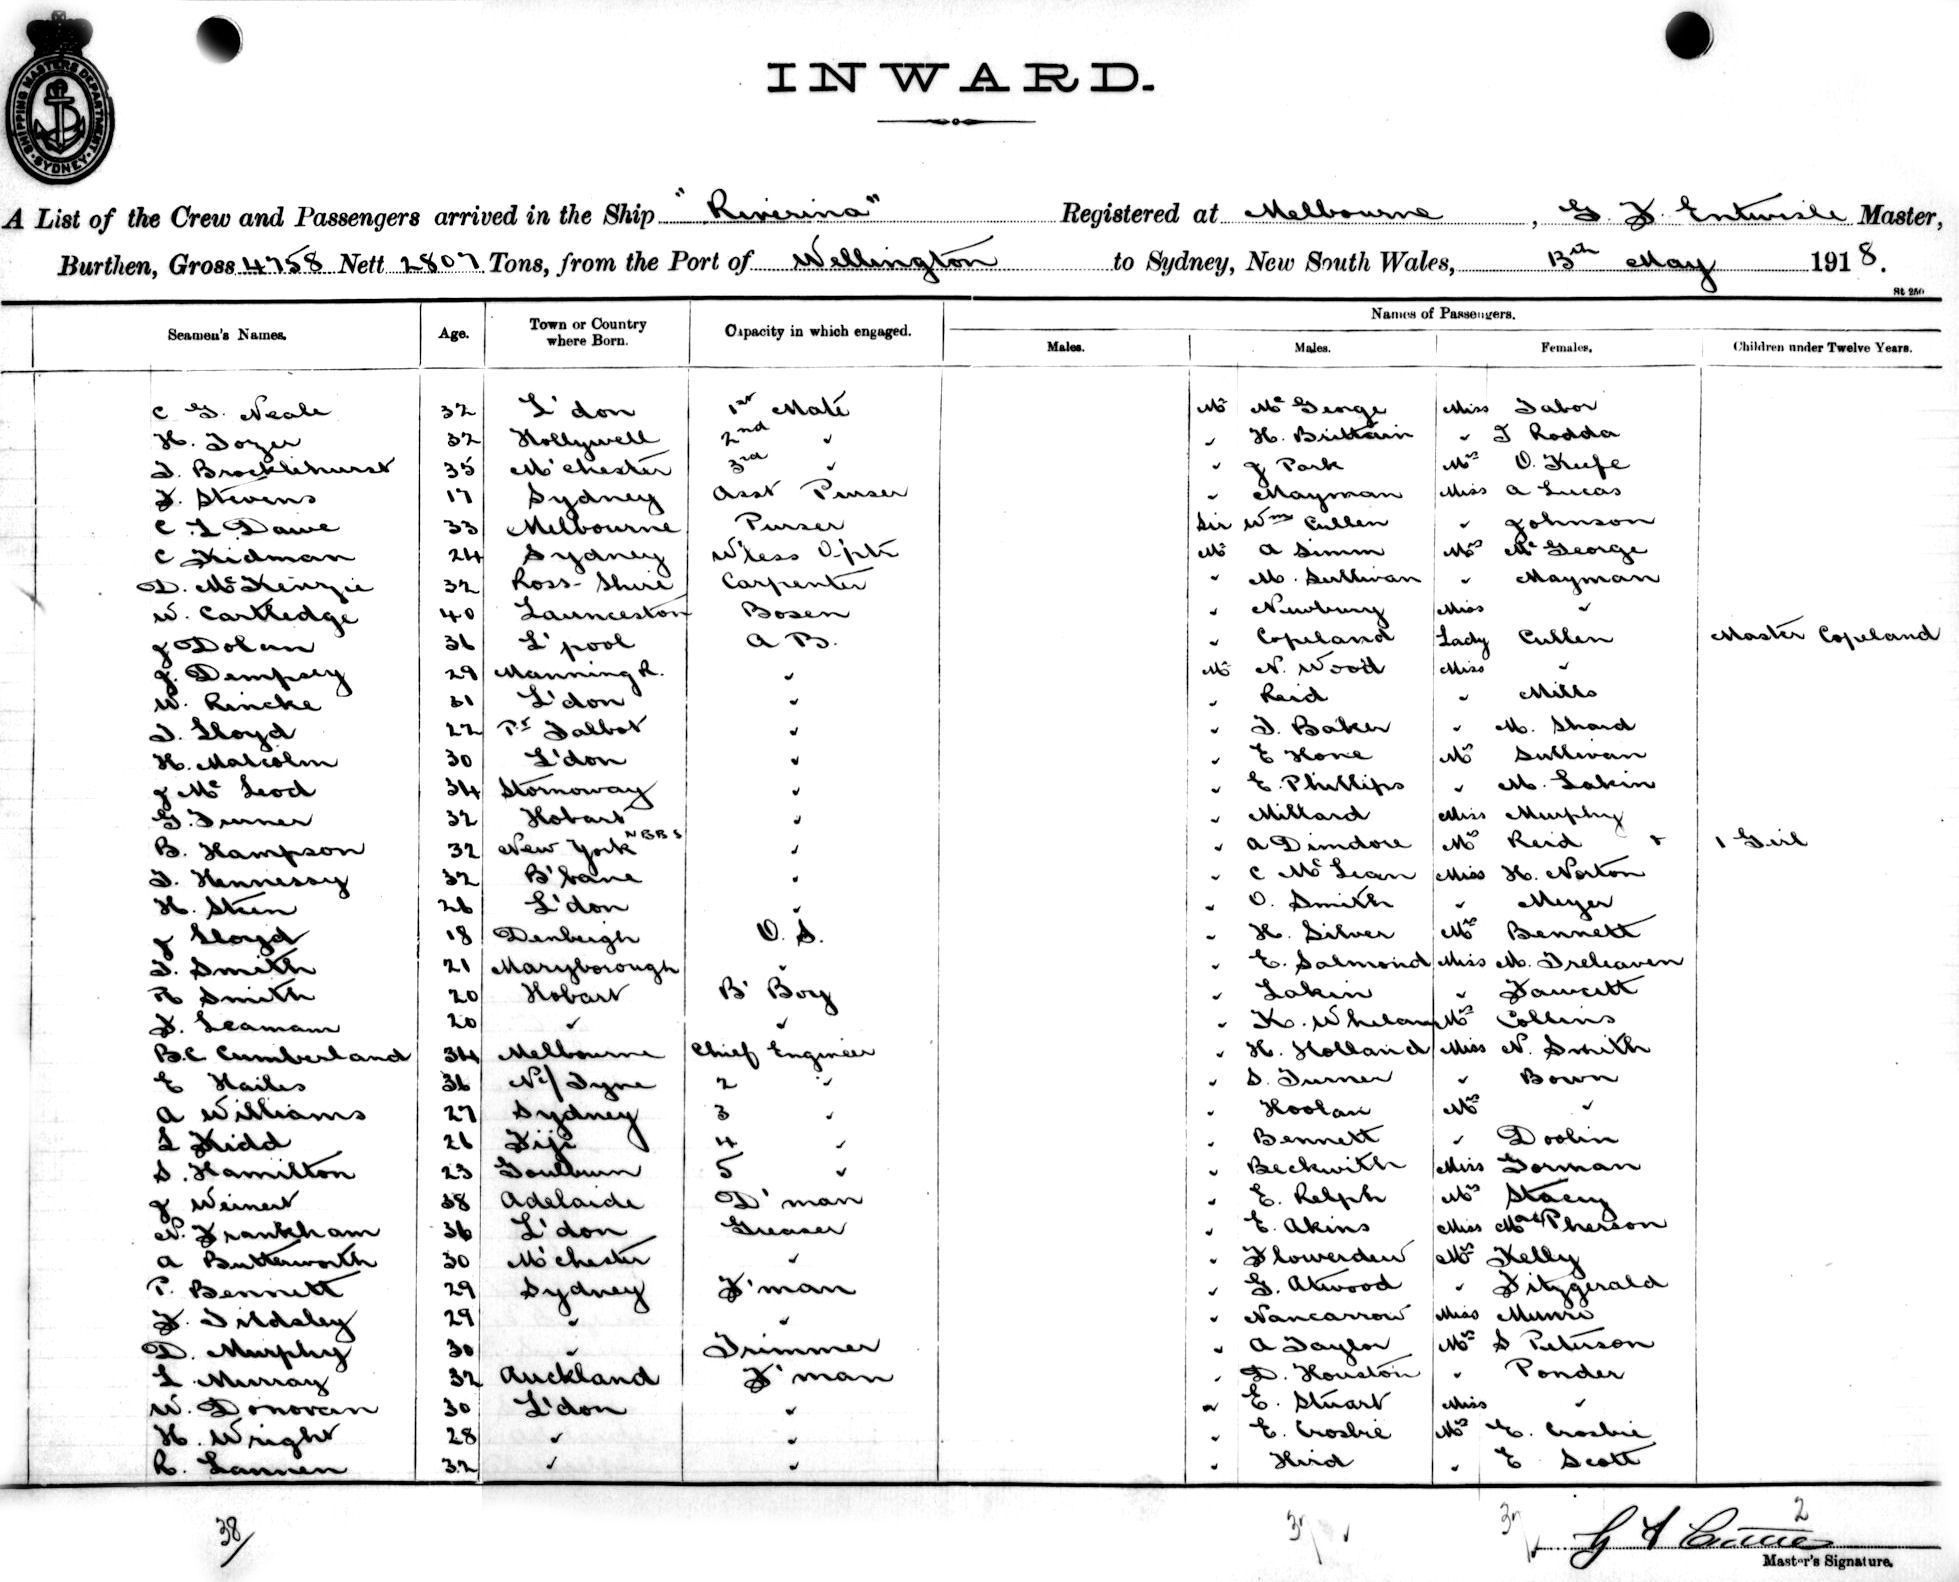 SHIPPING MASTERS DEPARTMENT · SYDNEY ·
INWARD.
A List of the Crew and Passengers arrived in the Ship "Riverina" Registered at Melbourne, G. F. Entwisle Master,
Burthen, Gross 4758 Nett 2807 Tons, from the Port of Wellington to Sydney, New South Wales, 13th May 1918.
St 250
Seamen's Names. Age. Town or Country where Born. Capacity in which engaged. Names of Passengers.
Males. Males. Females. Children under Twelve Years.
C G. Neale 32 L'don 1st Mate Mr McGeorge Miss Tabor
H. Tozer 32 Hollywell 2nd " " H. Brittain " T Rodda
T. Brocklehurst 35 M'chester 3rd " " J Park Mrs O. Keefe
F. Stevens 17 Sydney Asst Purser " Mayman Miss A Lucas
C. L Dawe 33 Melbourne Purser Sir Wm Cullen " Johnson
C Kidman 24 Sydney W'less Op'tr Mr A Simm Mrs McGeorge
D. McKenzie 32 Ross-Shire Carpenter " M. Sullivan " Mayman
W. Cartledge 40 Launceston Bosen " Newbury Miss "
J Dolan 36 L'pool A B. " Copeland Lady Cullen Master Copeland
J. Dempsey 29 Manning R. " Mr N. Wood Miss "
W. Rincke 31 L'don " " Reid " Mills
T. Lloyd 22 Pt Talbot " " T. Baker " M. Shard
H. Malcolm 30 L'don " " E Hone Mrs Sullivan
J McLeod 34 Stornoway " " E. Phillips " M. Lakin
G. Turner 32 Hobart " " Millard Miss Murphy
B. Hampson 32 New York NBBS " " A Dimdore Mrs Reid + 1 Girl
T. Hennessy 32 B'bane " " C McLean Miss H. Norton
H. Steen 26 L'don " " O. Smith " Meyer
J Lloyd 18 Denbeigh O. S. " H. Silver Mrs Bennett
T. Smith 21 Maryborough " " E. Salmond Miss M. Treleaven
R Smith 20 Hobart B' Boy " Lakin " Fawcett
F. Leamam 20 " " " K. Whelan Mrs Collins
B.C. Cumberland 34 Melbourne Chief Engineer " H. Holland Miss N. Smith
E Hailes 36 N/Tyne 2 " " S. Turner " Bown
A Williams 27 Sydney 3 " " Hoolan Mrs "
L Kidd 26 Fiji 4 " " Bennett " Doolin
S. Hamilton 23 Goulburn 5 " " Beckwith Miss Gorman
J Weinert 38 Adelaide D'man " E. Relph Mrs Stacey
N. Frankham 36 L'don Greaser " E. Akins Miss MacPherson
A Butterworth 30 M'chester " " Flowerdew Mrs Kelly
P. Bennett 29 Sydney F'man " G. Atwood " Fitzgerald
F. Tildsley 29 " " " Nancarrow Miss Munro
D. Murphy 30 " Trimmer " A Taylor Mrs S Peterson
L Murray 32 Auckland F'man " D. Houston " Ponder
W. Donovan 30 L'don " " E. Stuart Miss "
H. Wright 28 " " " E. Crosbie Mrs E. Crosbie
R. Lannen 32 " " " Hird " E Scott
38 37 37 2
Master's Signature.